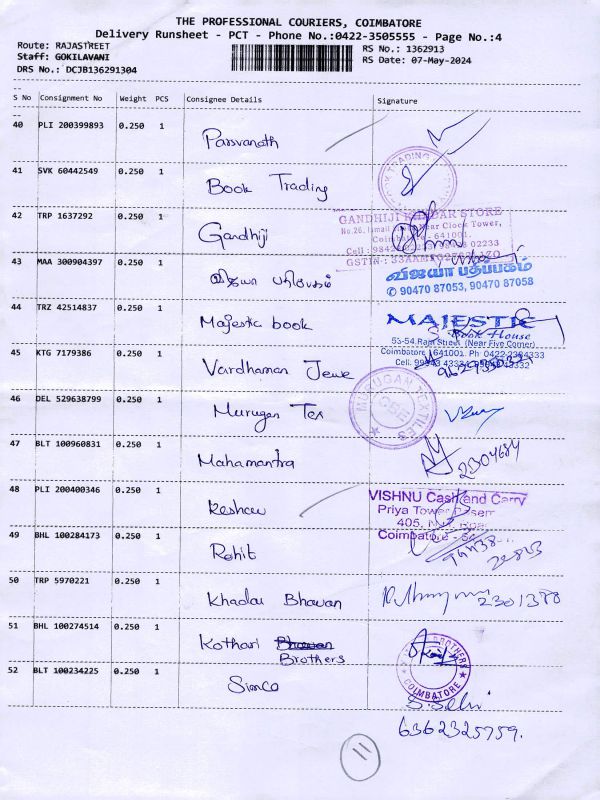 THE PROFESSIONAL COURIERS, COIMBATORE
Delivery Runsheet - PCT - Phone No.:0422-3505555 - Page No.:4
Route: RAJASTREET
RS No.: 1362913
Staff: GOKILAVANI
RS Date: 07-May-2024
DRS No.: DCJB136291304
S No Consignment No Weight PCS Consignee Details Signature
40 PLI 200399893 0.250 1 Parsvanath
41 SVK 60442549 0.250 1 Book Trading
TRADING
42 TRP 1637292 0.250 1 Gandhiji
GANDHIJI STORE
No.26, Clock Tower,
Coimbatore - 641001.
43 MAA 300904397 0.250 1 விஜயா பதிப்பகம்
விஜயா பதிப்பகம்
✆ 90470 87053, 90470 87058
44 TRZ 42514837 0.250 1 Majestic book
MAJESTIC
Book House
53-54, Raja Street (Near Five Corner)
Coimbatore 641001. Ph 0422-2394333
45 KTG 7179386 0.250 1 Vardhaman Jewe
46 DEL 529638799 0.250 1 Murugan Tex
MURUGAN TEXTILES
47 BLT 100960831 0.250 1 Mahamantra
2304684
48 PLI 200400346 0.250 1 Keshav
VISHNU Cash and Carry
Priya Tower
405,
Coimbatore
49 BHL 100284173 0.250 1 Rohit
50 TRP 5970221 0.250 1 Khadai Bhavan
2301388
51 BHL 100274514 0.250 1 Kothari Bhavan
Brothers
BROTHERS
COIMBATORE
52 BLT 100234225 0.250 1 Simco
S. Selvi
6362325759.
11